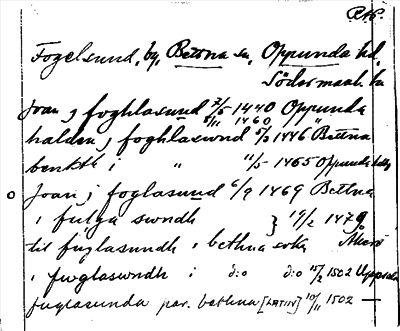 RAP.
Fogelsund, by, Bettna sn, Oppunda hd,
Södermanl. ln
Joan j foghlasund 7/5 1440 Oppunda
8/11 1460 "
halden j foghlaswnd 5/3 1446 Bettna
benkth i " 11/5 1465 Oppunda
Joan j foglasund 6/9 1469 Bettna
i fulga swndh } 19/2 1479
til fuglasundh i bethna sokn
i fwglaswndh i d:o d:o 15/2 1502 Uppsala
fuglasunda par. bethna [LATIN] 10/11 1502 —